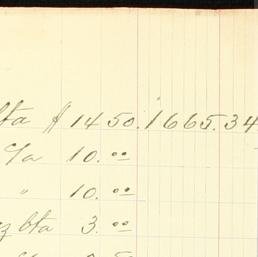 bta $ 1450. 1665.34
c/a 10.00
" 10.00
bta 3.00